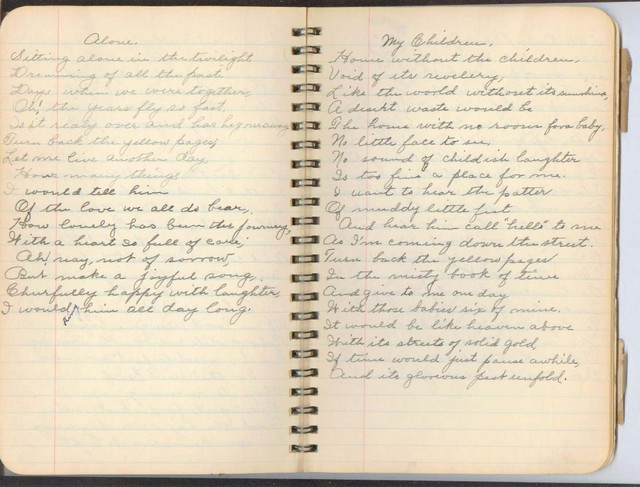 Alone.
Sitting alone in the twilight
Dreaming of all the past
Days when we were together,
Oh! the years fly so fast.
Is it realy over and has he gone away
Turn back the yellow pages
Let me live another day
How many things
I would tell him
Of the love we all do bear,
How lonely has been the journey,
With a heart so full of care
Ah! nay, not of sorrow,
But make a joyful song.
Churfully happy with laughter,
I would him all day long.
My Children.
Home without the children,
Void of its revelery,
Like the world without its sunshine,
A desert waste would be
The home with no room for a baby,
No little face to see,
No sound of childish laughter
Is too fine a place for me.
I want to hear the patter
Of muddy little feet
And hear him call "hello" to me
As I'm coming down the street.
Turn back the yellow pages
In the misty book of time
And give to me one day
With those babies six of mine.
It would be like heaven above
With its streets of solid gold
If time would just pause awhile,
And its glorious past unfold.